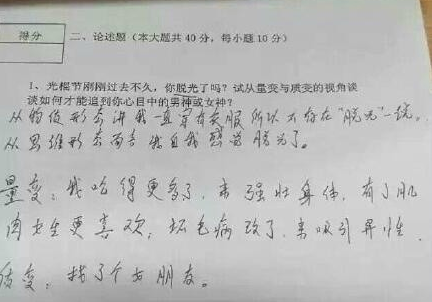 得分
二、论述题（本大题共40分，每小题10分）
1、光棍节刚刚过去不久，你脱光了吗？试从量变与质变的视角谈
谈如何才能追到你心目中的男神或女神？
从物质形态讲我一直穿有衣服所以不存在“脱光”一说。
从思维形态而言我自我感觉脱光了。
量变：我吃得更多了，来强壮身体，有了肌
肉女生更喜欢，坏毛病改了，来吸引异性．
质变：找了个女朋友。